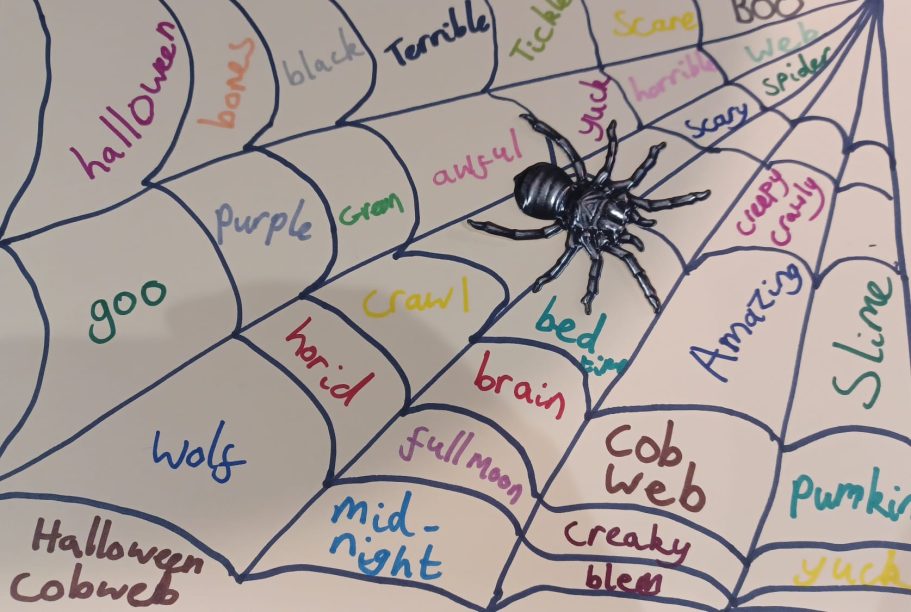 halloween
bones
black
Terrible
Tickle
Scare
BOO
yuck
horrible
web
spider
scary
awful
purple
Green
creepy
crawly
goo
crawl
bed
time
Amazing
Slime
horid
brain
wolf
full moon
Cob
web
pumkin
mid-
night
creaky
Halloween
Cobweb
blem
yuck